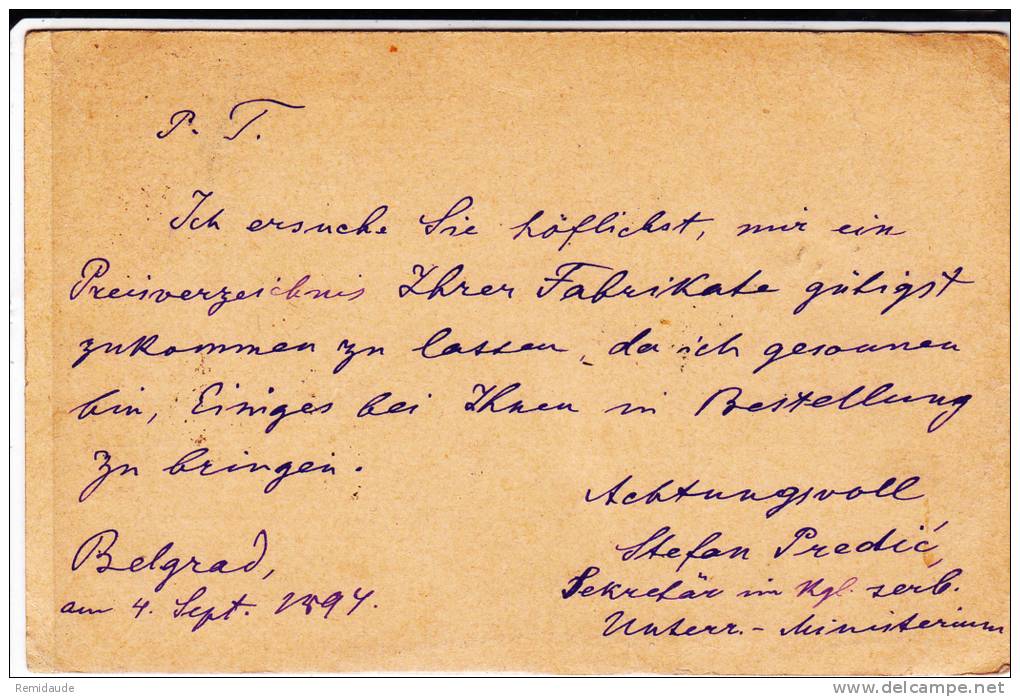 P. T.
Ich ersuche Sie höflichst, mir ein
Preisverzeichnis Ihrer Fabrikate gütigst
zukommen zu lassen, da ich gesonnen
bin, Einiges bei Ihnen in Bestellung
zu bringen.
Achtungsvoll
Stefan Predić,
Sekretär im Kgl. serb.
Unterr.-Ministerium
Belgrad,
am 4. Sept. 1894.
Remidaude
delcampe.net